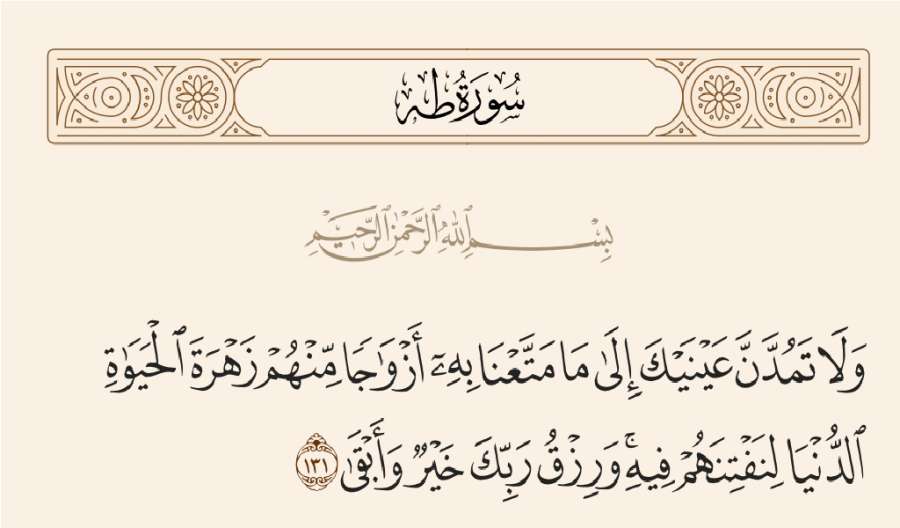 سُورَةُ طه
بِسْمِ ٱللَّهِ ٱلرَّحْمَٰنِ ٱلرَّحِيمِ
وَلَا تَمُدَّنَّ عَيْنَيْكَ إِلَىٰ مَا مَتَّعْنَا بِهِۦٓ أَزْوَٰجًا مِّنْهُمْ زَهْرَةَ ٱلْحَيَوٰةِ
ٱلدُّنْيَا لِنَفْتِنَهُمْ فِيهِ ۚ وَرِزْقُ رَبِّكَ خَيْرٌ وَأَبْقَىٰ ١٣١